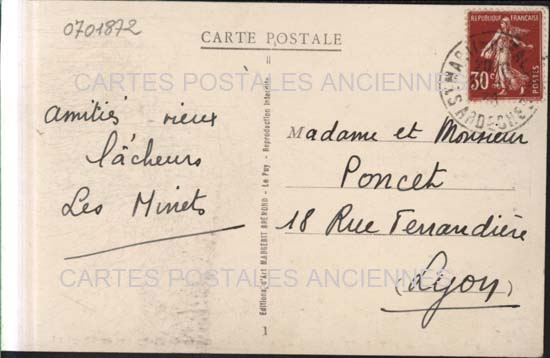 0701872
CARTE POSTALE
REPUBLIQUE FRANÇAISE
30c
POSTES
ARDECHE
CARTES POSTALES ANCIENNES
amitiés vieux
lâcheurs
Les Minets
Madame et Monsieur
Poncet
18 Rue Ferrandière
(Lyon)
CARTES POSTALES ANCIENNES
Editions d'Art MARGERIT BRÉMOND - Le Puy - Reproduction interdite
1